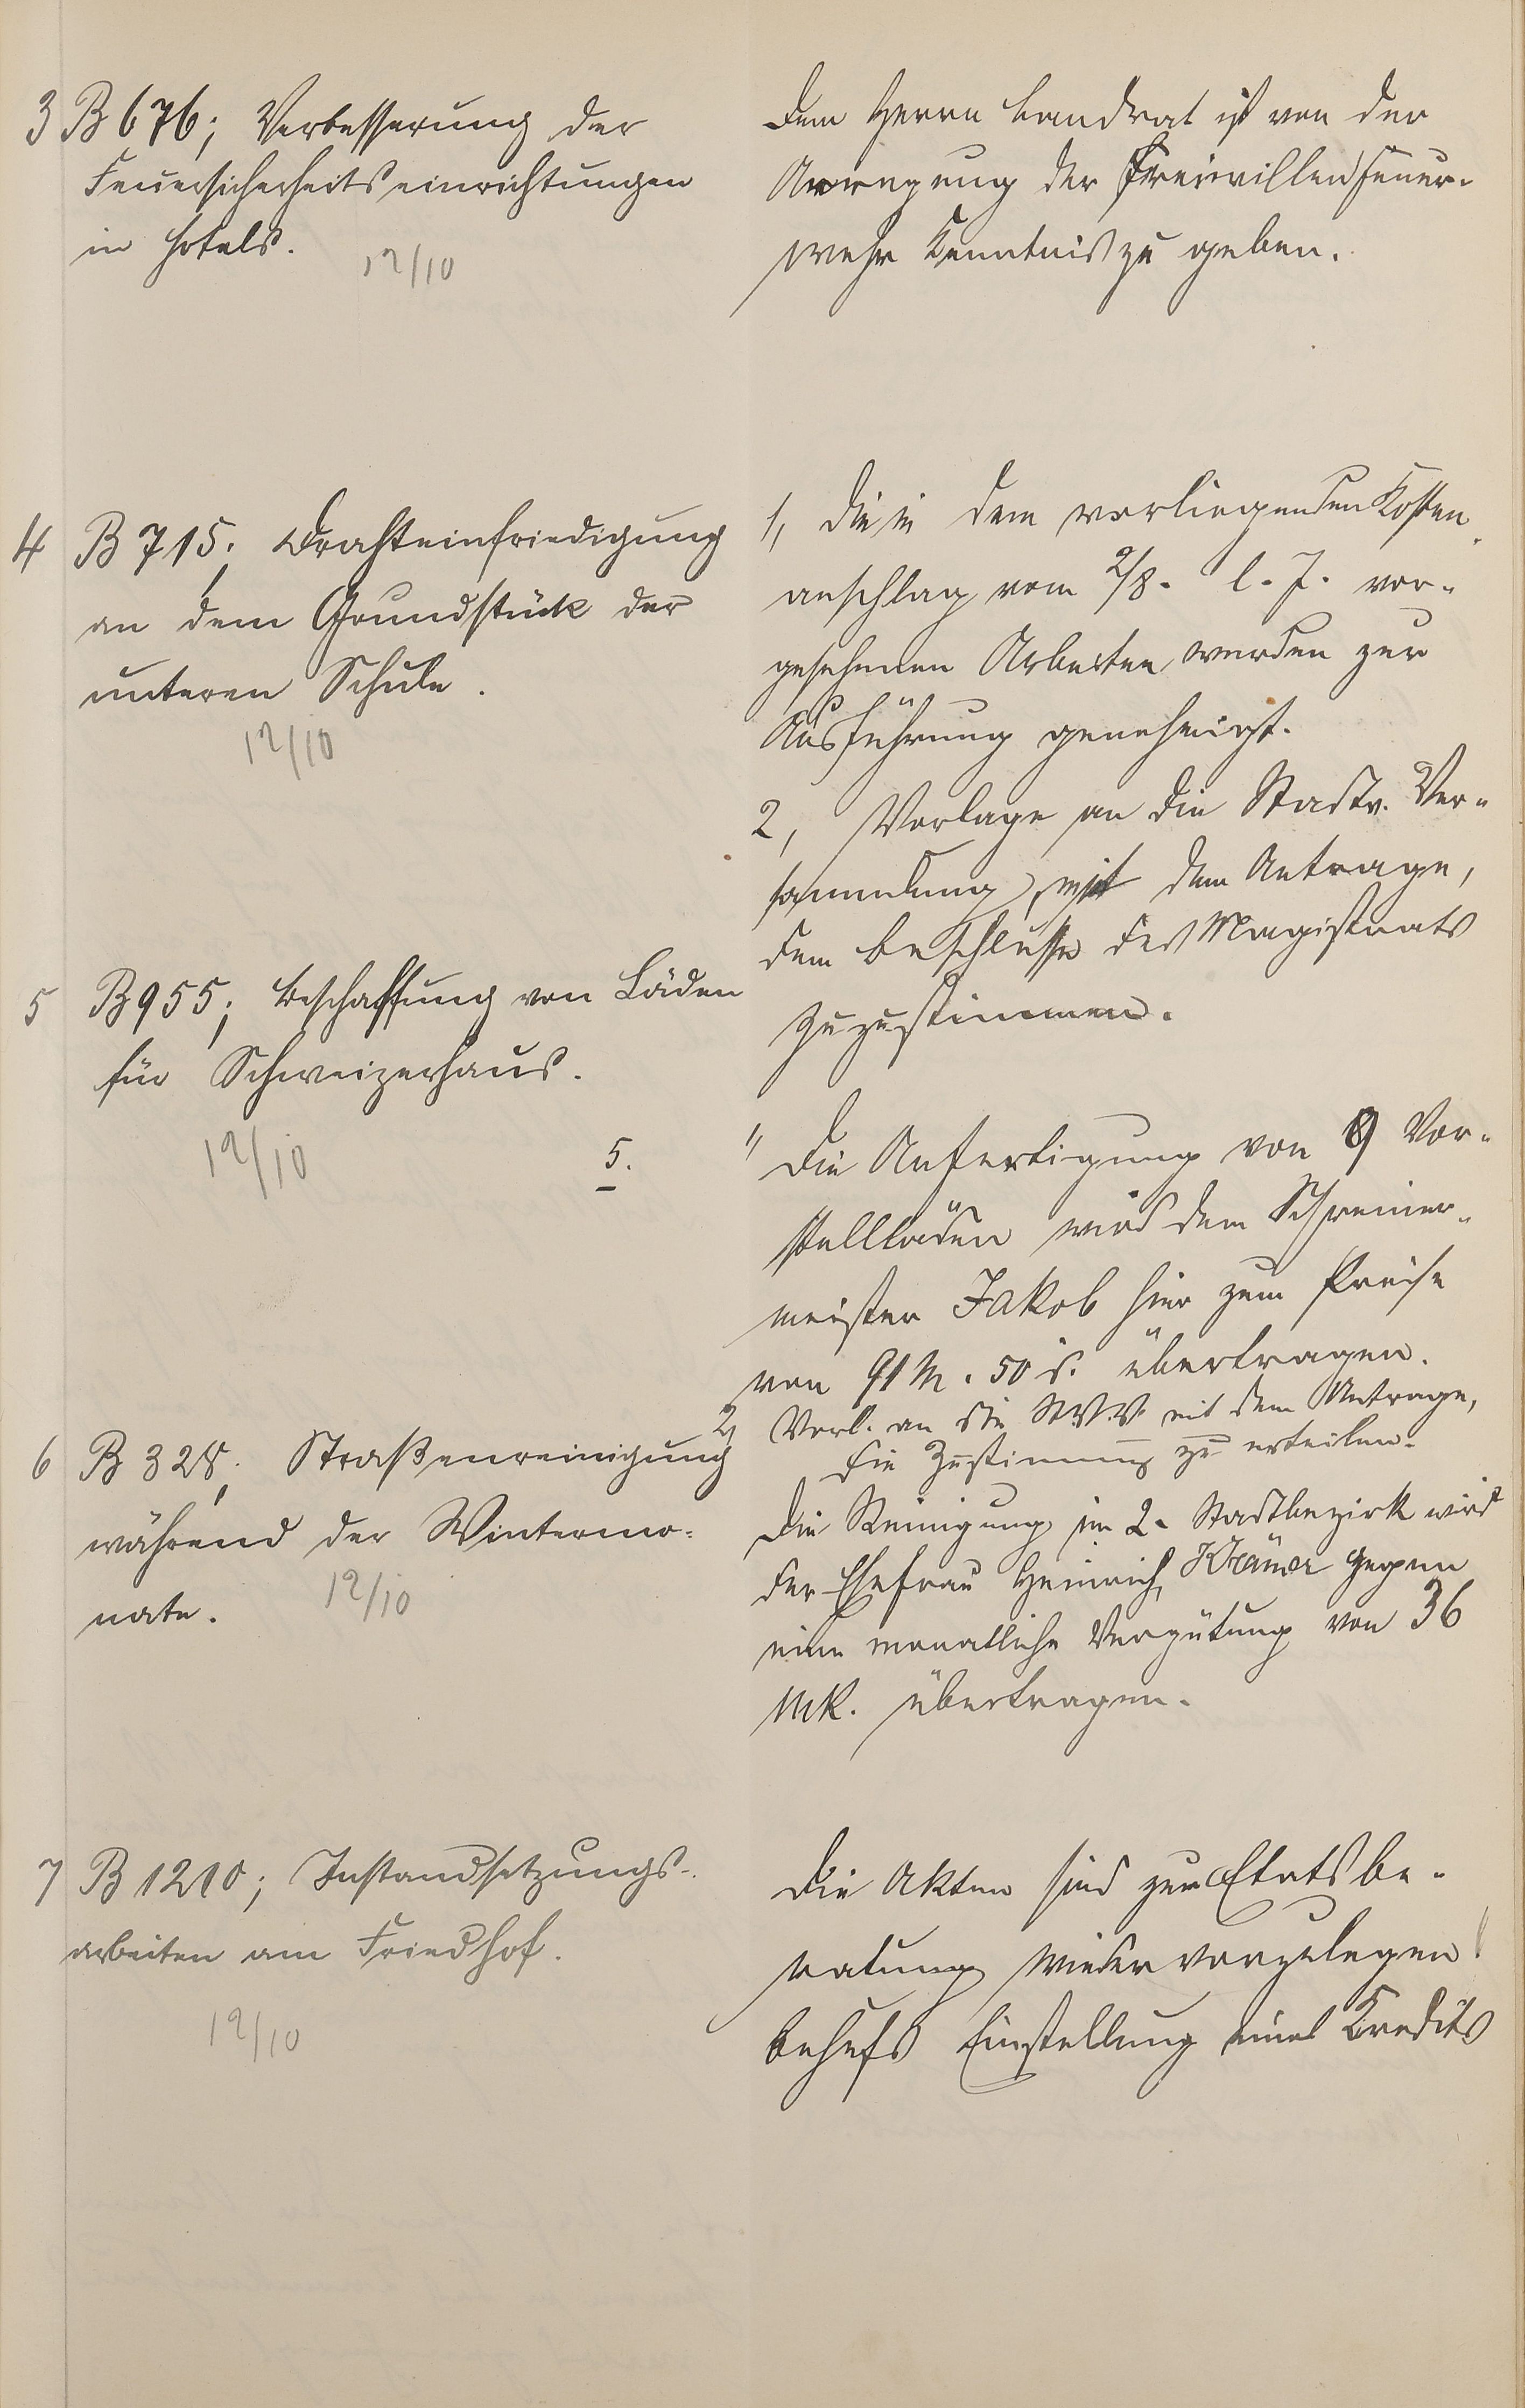 3 B 676; Verbesserung der
Feuersicherheitseinrichtungen
in Hotels.
12/10
Dem Herrn Landrat ist von der
Anregung der Freiwillen Feuer-
wehr Kenntnis zu geben.
4 B 715; Drahteinfriedigung
an dem Grundstück der
unteren Schule.
12/10
1, Die in dem vorliegenden Kosten-
anschlag vom 2/8. l. J. vor-
gesehenen Arbeiten werden zur
Ausführung genehmigt.
2, Vorlage an die Stadtv. Ver-
sammlung mit dem Antrage,
dem Beschlusse des Magistrats
zuzustimmen.
5 B 955; Beschaffung von Läden
für Schweizerhaus.
12/10
5.
1, Die Anfertigung von 9 Vor-
stelläden wird dem Schreiner-
meister Jakob hier zum Preise
von 91 M. 50 übertragen.
2, Vorl. an die St.V.V. mit dem Antrage,
die Zustimmung zu erteilen.
6 B 328; Straßenreinigung
während der Wintermo-
nate.
12/10
Die Reinigung im 2. Stadtbezirk wird
der Ehefrau Heinrich Krämer gegen
eine monatliche Vergütung von 36
Mk. übertragen.
7 B 1210; Instandsetzungs-
arbeiten am Friedhof.
12/10
Die Akten sind zur Etatsbe-
ratung wieder vorzulegen
behufs Einstellung eines Kredits